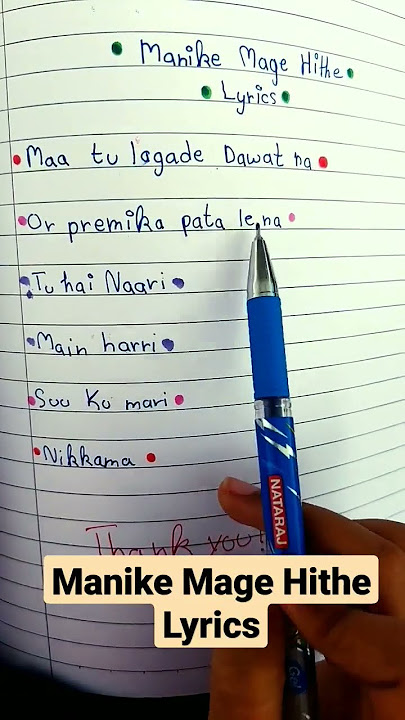 Manike Mage Hithe
Lyrics
Maa tu lagade Dawat na
Or premika pata le na
Tu hai Naari
Main harri
Suu Ku mari
Nikkama
Thank you!
NATARAJ
Manike Mage Hithe
Lyrics